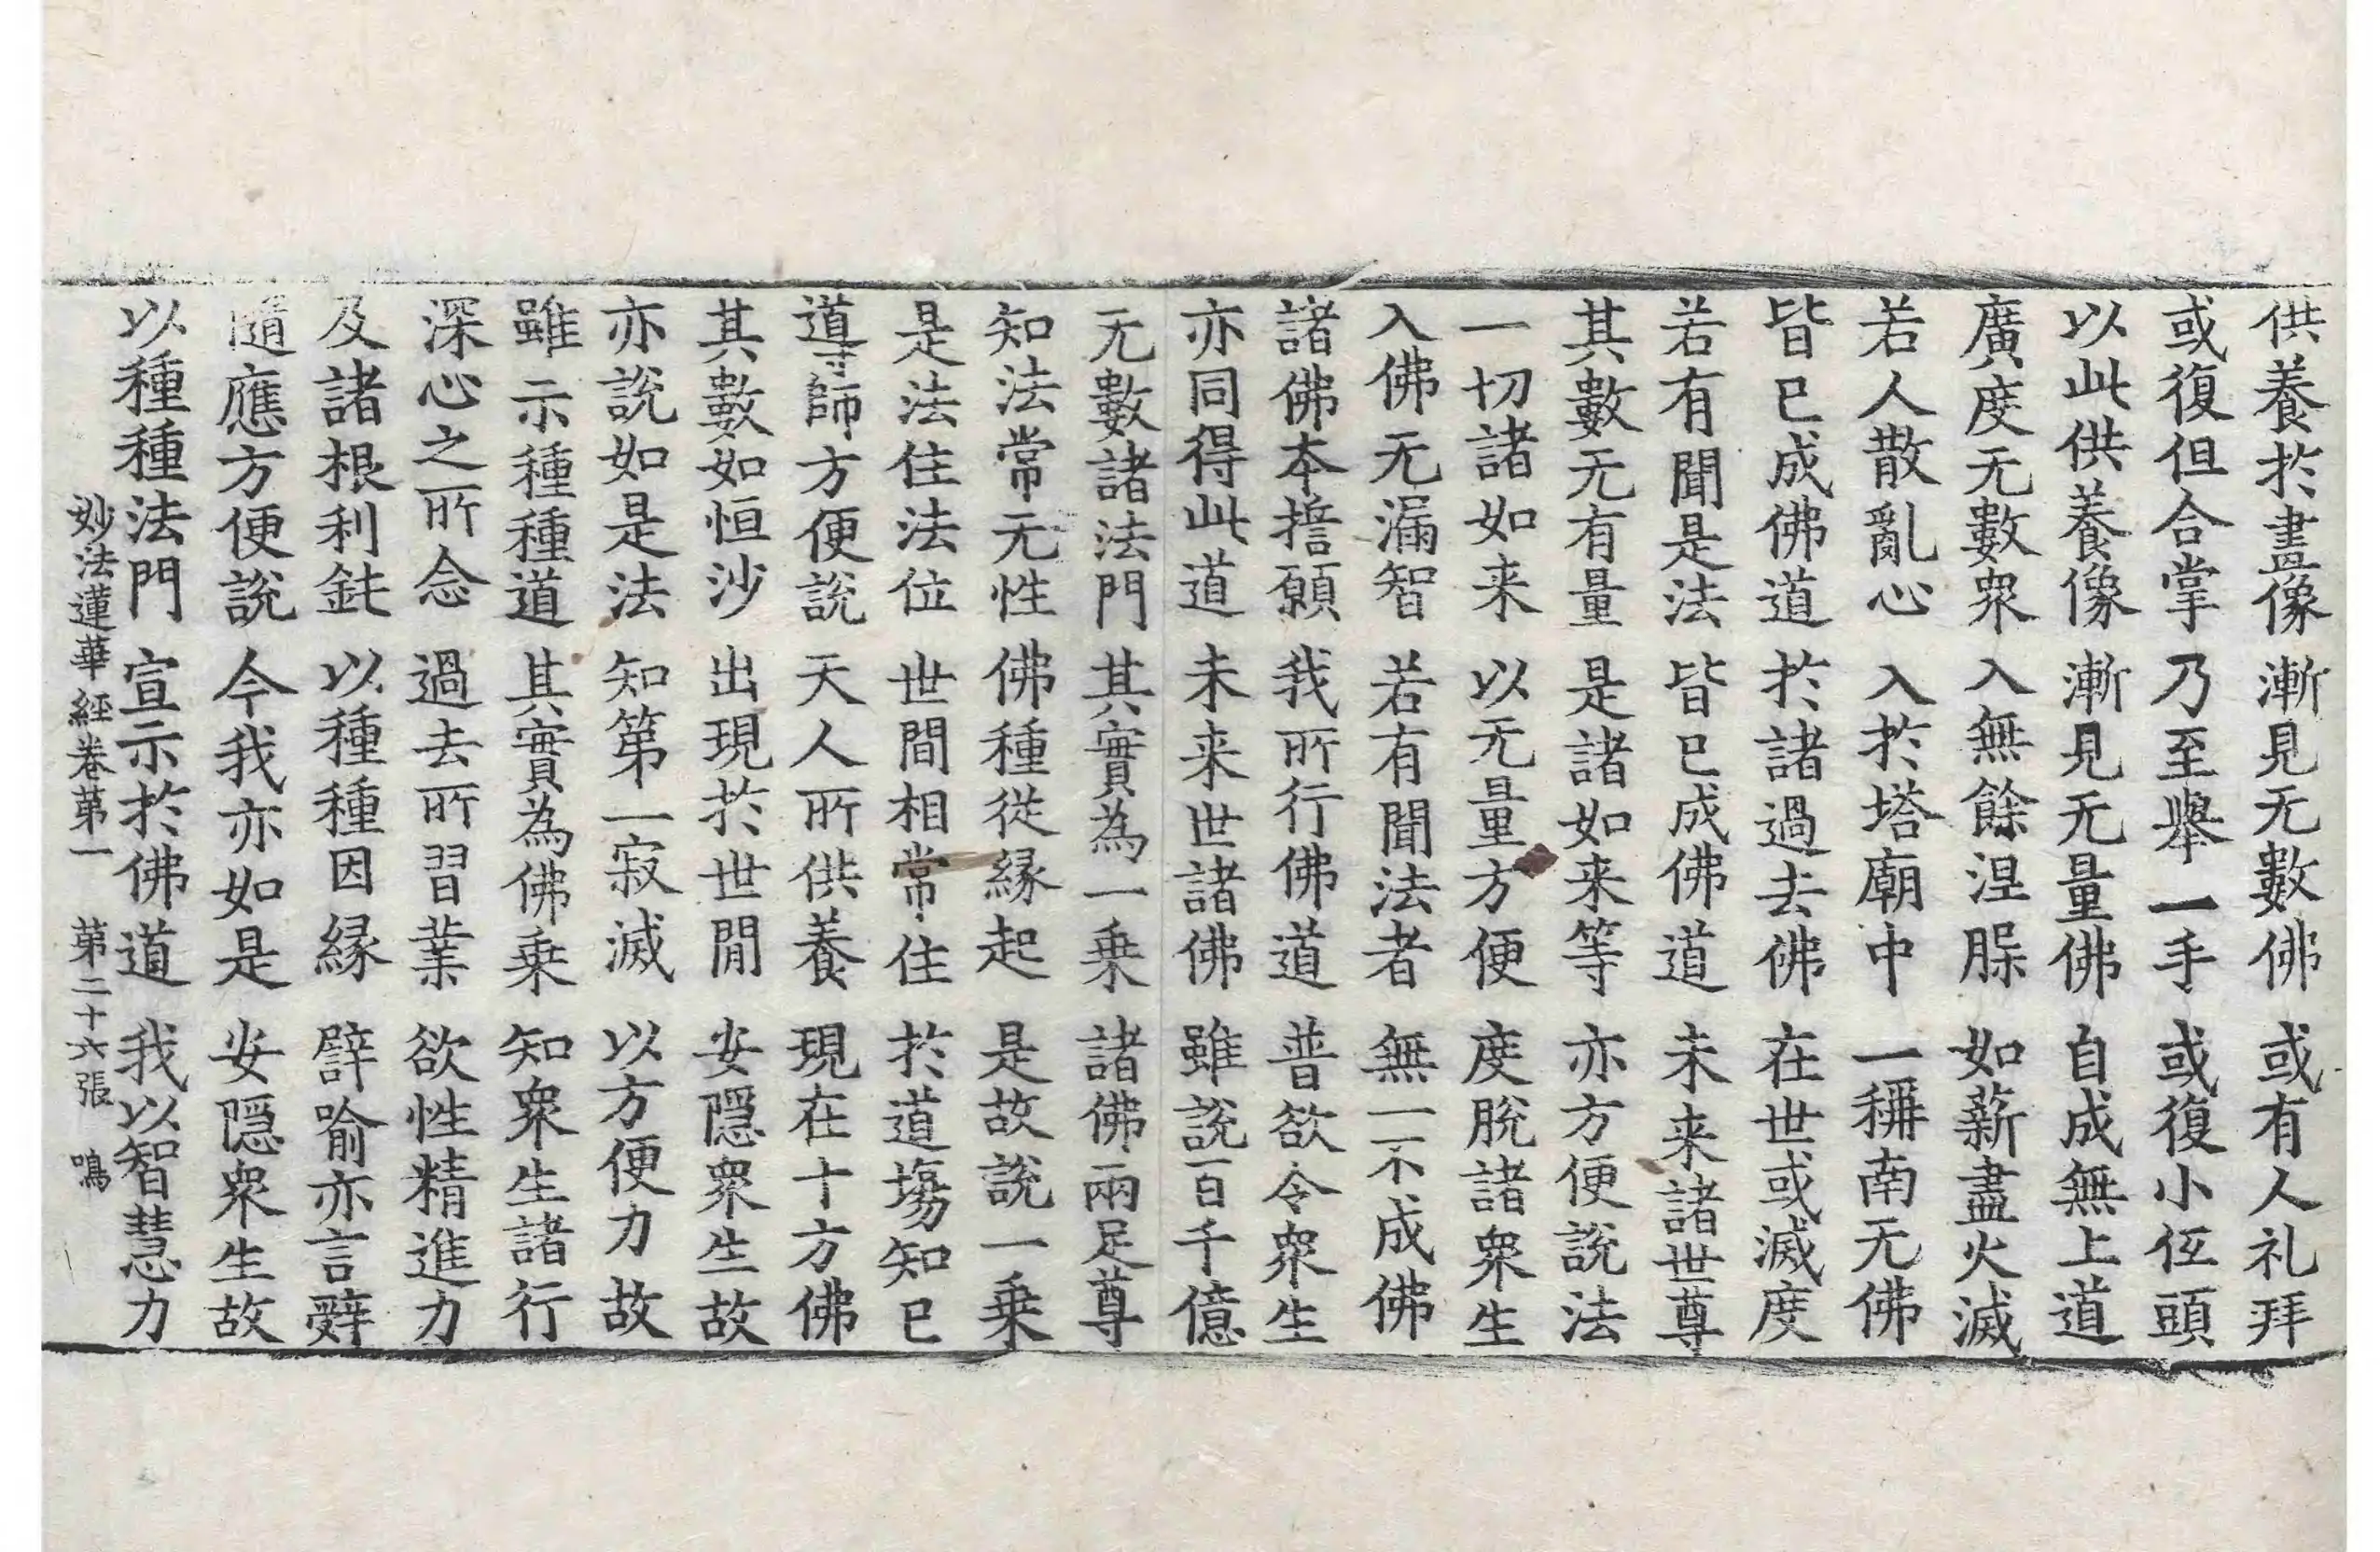 供養扵畫像 漸見无數佛 或有人礼拜
或復但合掌 乃至舉一手 或復小伍頭
以此供養像 漸見无量佛 自成無上道
廣度无數衆 入無餘涅脲 如薪盡火滅
若人散亂心 入扵塔廟中 一稱南无佛
皆已成佛道 扵諸過去佛 在世或滅度
若有聞是法 皆已成佛道 未来諸世尊
其數无有量 是諸如来等 亦方便說法
一切諸如来 以无量方便 度脫諸衆生
入佛无漏智 若有聞法者 無一不成佛
諸佛本擔願 我所行佛道 普欲令衆生
亦同得此道 未来世諸佛 雖說百千億
无數諸法門 其實為一乗 諸佛兩足尊
知法常无性 佛種從緣起 是故說一乗
是法住法位 世間相常住 扵道場知已
導師方便說 天人所供養 現在十方佛
其數如恒沙 出現扵世閒 安隱衆生故
亦說如是法 知第一寂滅 以方便力故
雖示種種道 其實為佛乗 知衆生諸行
深心之所念 過去所習業 欲性精進力
及諸根利鈍 以種種因緣 譬喻亦言辭
隨應方便說 今我亦如是 安隱衆生故
以種種法門 宣示扵佛道 我以智慧力
妙法蓮華經卷第一 第二十六張 鳴